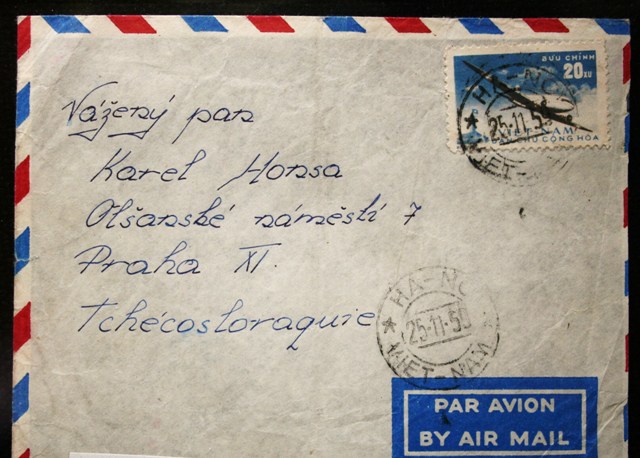 BƯU CHÍNH
20 XU
VIỆT-NAM
DÂN CHỦ CỘNG HÒA
HA-NOI
25.11.59
VIET-NAM
Vážený pan
Karel Honsa
Olšanské náměstí 7
Praha XI.
Tchécosloraquie
HA-NOI
25-11-59
VIET-NAM
PAR AVION
BY AIR MAIL